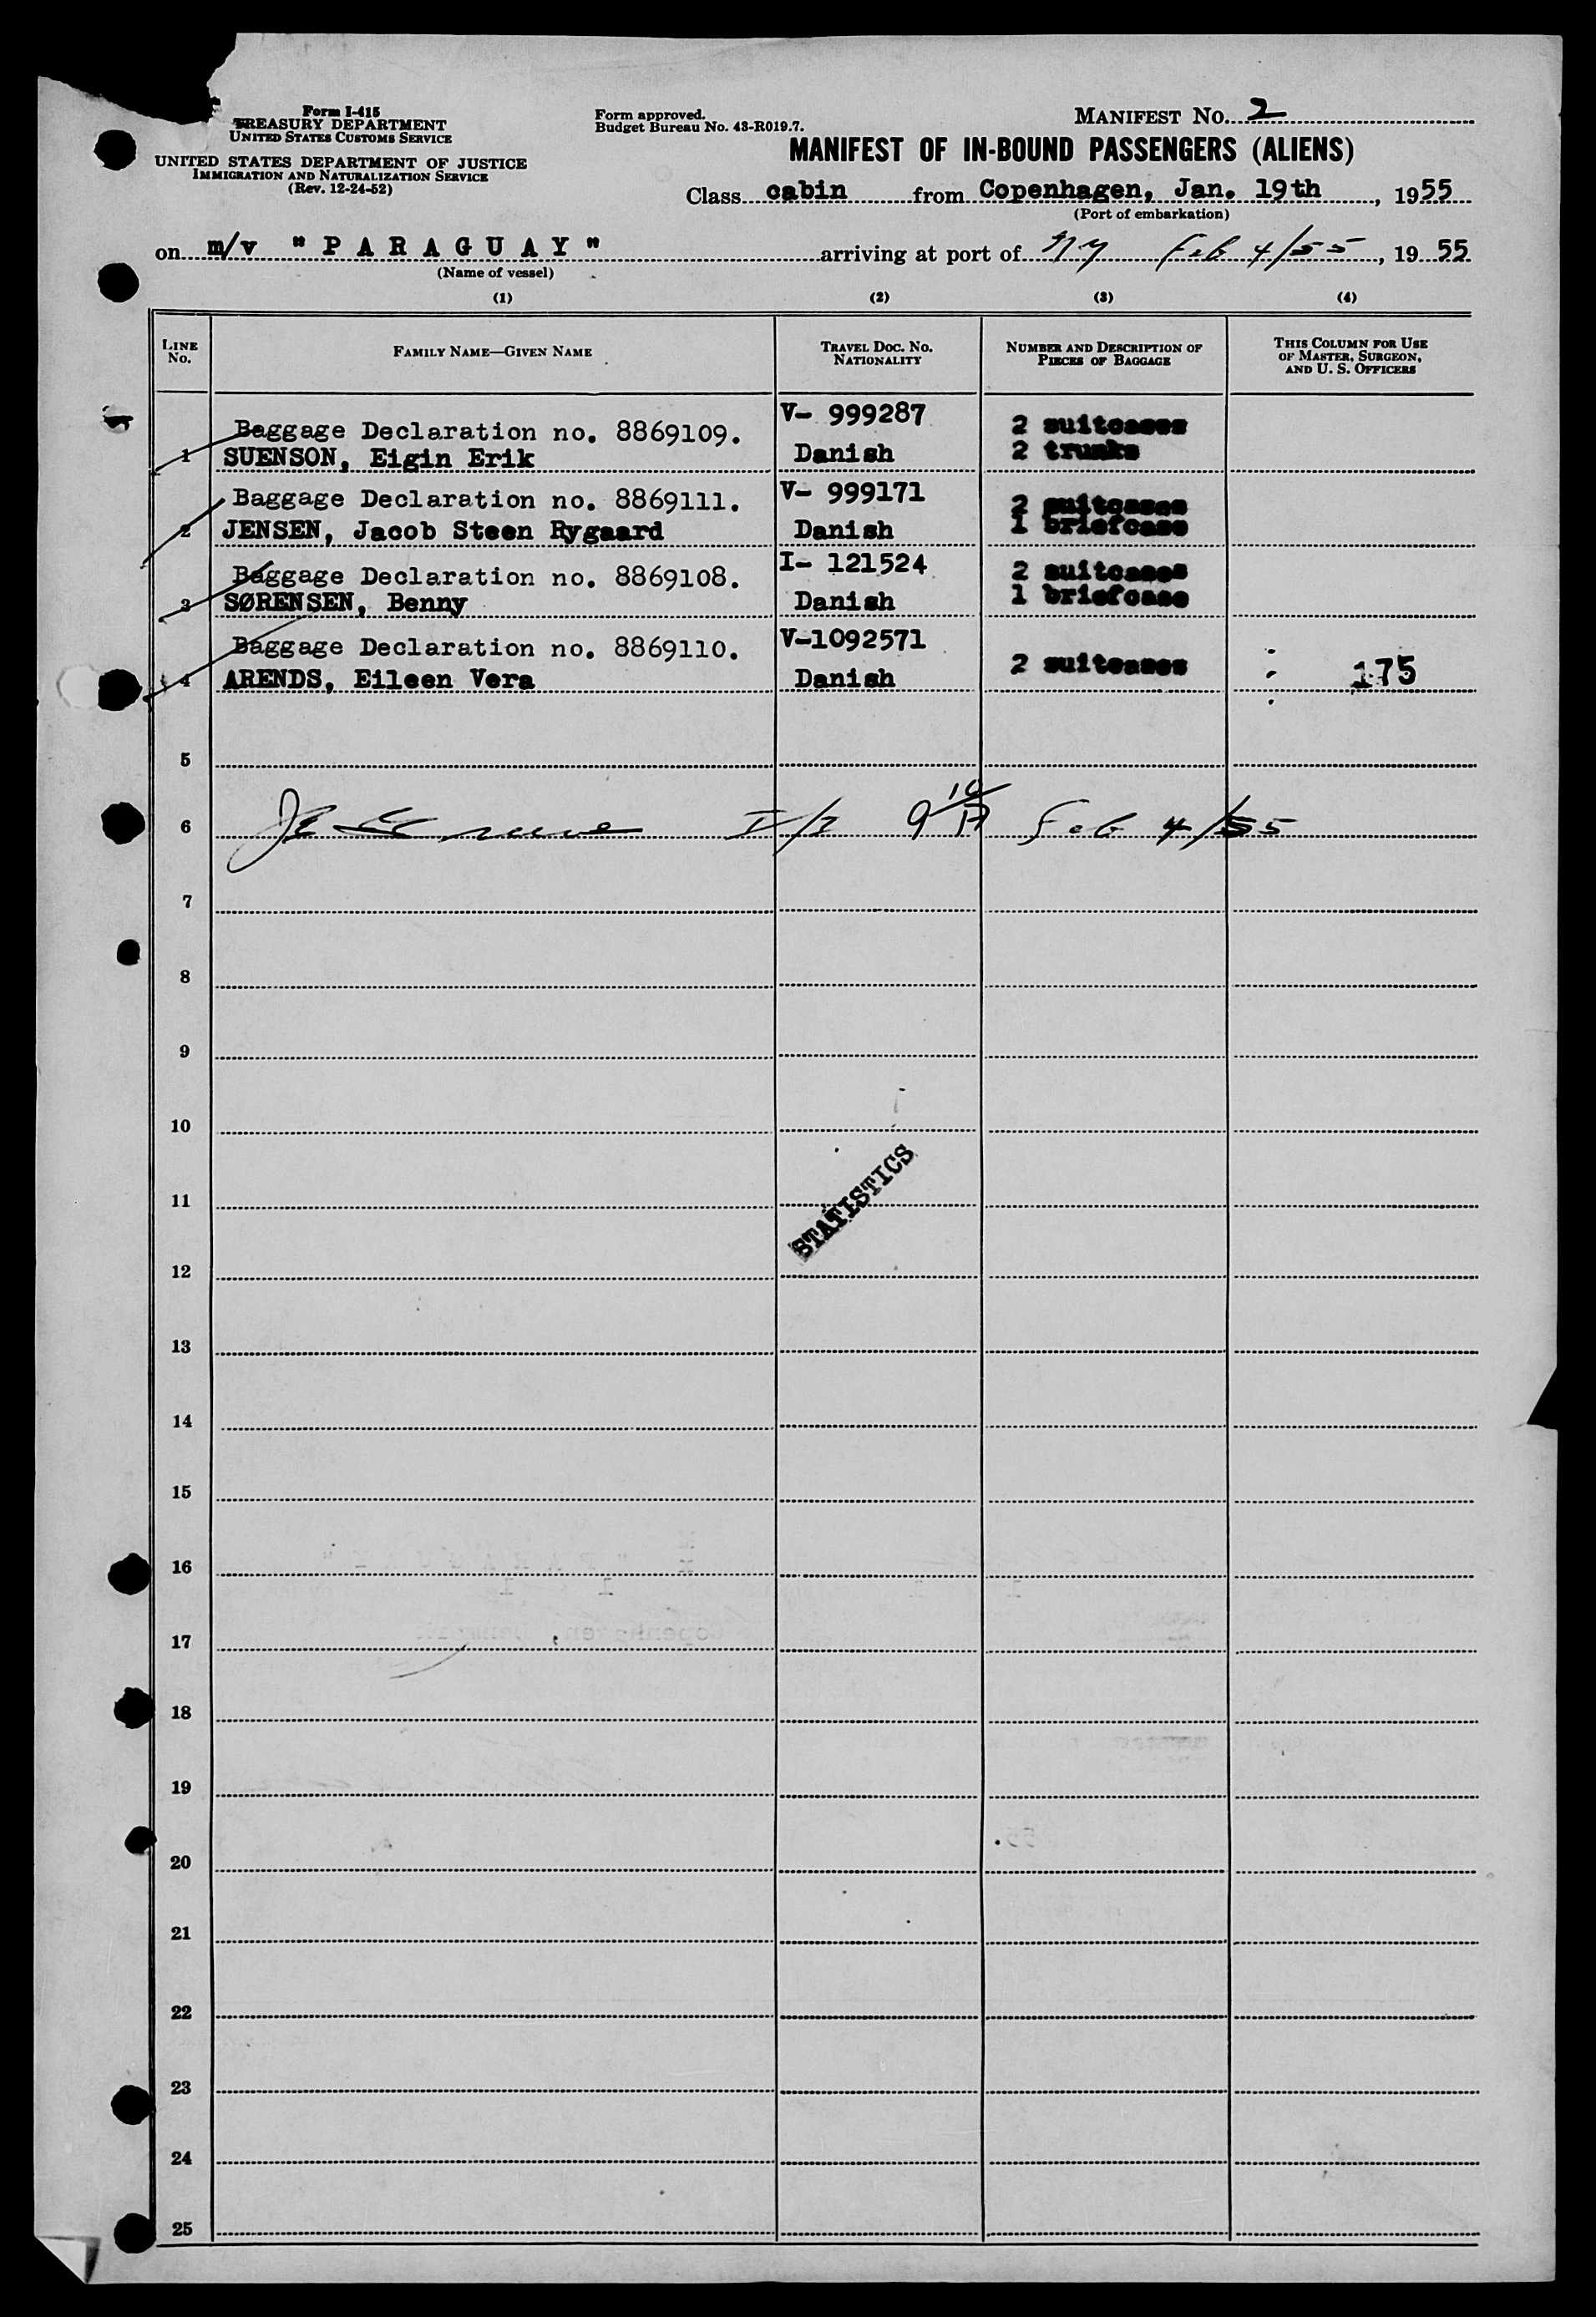 Form I-415
TREASURY DEPARTMENT
UNITED STATES CUSTOMS SERVICE
UNITED STATES DEPARTMENT OF JUSTICE
IMMIGRATION AND NATURALIZATION SERVICE
(Rev. 12-24-52)
Form approved.
Budget Bureau No. 43-R019.7.
MANIFEST NO. 2
MANIFEST OF IN-BOUND PASSENGERS (ALIENS)
Class cabin from Copenhagen, Jan. 19th, 1955
(Port of embarkation)
on m/v "PARAGUAY" arriving at port of NY Feb 4/55, 1955
(Name of vessel)
(1) (2) (3) (4)
LINE No.
FAMILY NAME—GIVEN NAME
TRAVEL DOC. NO. NATIONALITY
NUMBER AND DESCRIPTION OF PIECES OF BAGGAGE
THIS COLUMN FOR USE OF MASTER, SURGEON, AND U. S. OFFICERS
Baggage Declaration no. 8869109. V- 999287 2 suitcases
1 SUENSON, Eigin Erik Danish 2 trunks
Baggage Declaration no. 8869111. V- 999171 2 suitcases
2 JENSEN, Jacob Steen Rygaard Danish 1 briefcase
Baggage Declaration no. 8869108. I- 121524 2 suitcases
3 SØRENSEN, Benny Danish 1 briefcase
Baggage Declaration no. 8869110. V-1092571 2 suitcases
4 ARENDS, Eileen Vera Danish 175
5
6 Feb 4/55
7
8
9
10
11
STATISTICS
12
13
14
15
16
17
18
19
20
21
22
23
24
25